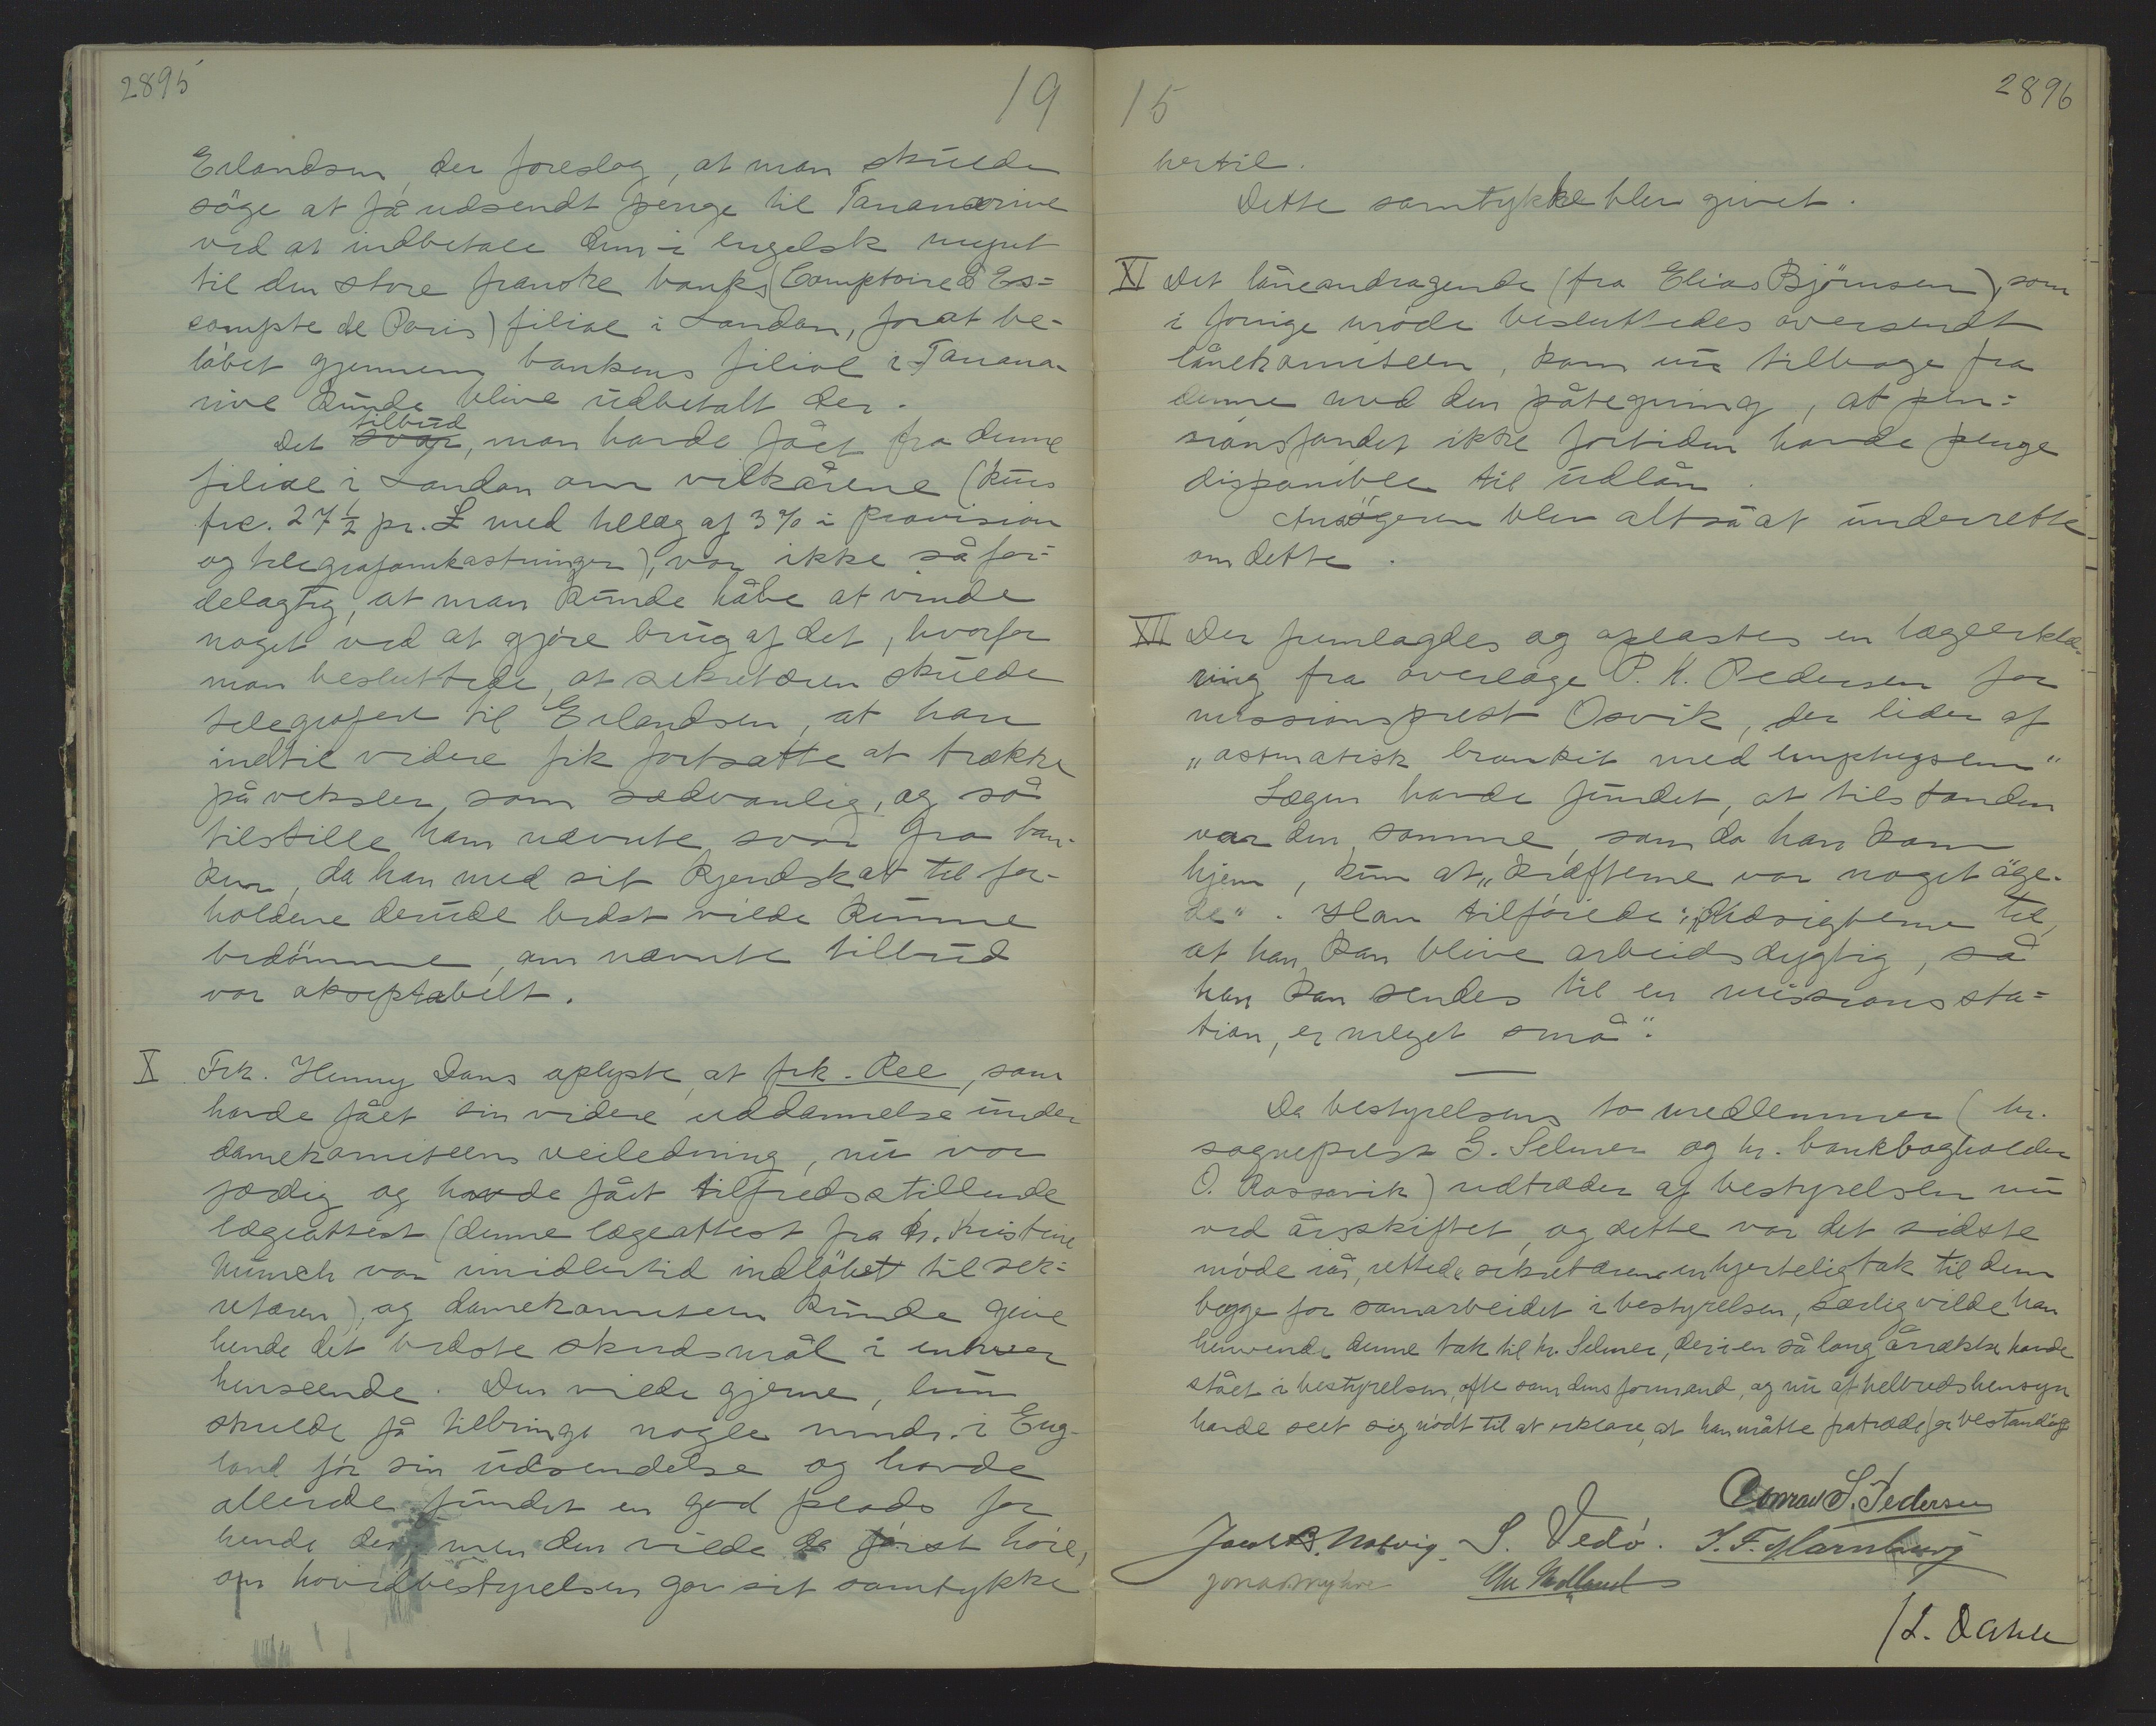 2895
19
Erlandsen, der foreslog, at man skulde
söge at få udsendt penge til Tananarive
ved at indbetale dem i engelsk mynt
til den store franske banks (Comptoire d'Es=
compte de Paris) filial i London, forat be-
löbet gjennem bankens filial i Tanana-
rive kunde blive udbetalt der.
tilbud
Det svar, man havde fået fra denne
filial i London om vilkårene (kurs
frc. 27 1/2 pr. £ med tillæg af 3 % i provision
og telegrafomkastninger), var ikke så for=
delagtig, at man kunde håbe at vinde
noget ved at gjöre brug af det, hvorfor
man besluttede, at sekretæren skulde
telegrafere til Erlandsen, at han
indtil videre fik fortsætte at trække
på veksler, som sædvanlig, og så
tilstille ham nævnte svar fra ban-
ken, da han med sit kjendskab til for-
holdene derude bedst vilde kunne
bedömme, om nævnte tilbud
var akseptabelt.
X Frk. Henny Dons oplyste, at frk. Ree, som
havde fået sin videre uddannelse under
damekomiteens veiledning, nu var
færdig og havde fået tilfredsstillende
lægeattest (denne lægeattest fra dr. Kristine
Munch var imidlertid indlöbet til sek=
retæren), og damekomiteen kunde give
hende det bedste skudsmål i enhver
henseende. Den vilde gjerne, hun
skulde få tilbringe nogle mndr. i Eng-
land för sin udsendelse og havde
allerede fundet en god plads for
hende der, men den vilde da först höre,
om hovedbestyrelsen gav sit samtykke
15
2896
hertil.
Dette samtykke blev givet.
XI Det låneandragende (fra Elias Björnsen), som
i forrige möde besluttedes oversendt
lånekomiteen, kom nu tilbage fra
denne med den påtegning, at pen=
sionsfondet ikke fortiden havde penge
disponible til udlån.
Ansögeren blev altså at underrette
om dette.
XII Der fremlagdes og oplæstes en lægeerklæ-
ring fra overlæge P. N. Pedersen for
missionsprest Osvik, der lider af
„astmatisk bronkit med emphysem"
Lægen havde fundet, at tilstanden
var den samme, som da han kom
hjem, kun at „kræfterne var noget öge-
de". Han tilföiede: „Udsigterne til,
at han kan blive arbeidsdygtig, så
han kan sendes til en missionssta=
tion, er meget små".
Da bestyrelsens to medlemmer (hr.
sogneprest G. Selmer og hr. bankbogholder
O. Rossavik) udtræder af bestyrelsen nu
ved årsskiftet, og dette var det sidste
möde iår, rettede sekretæren en hjertelig tak til dem
begge for samarbeidet i bestyrelsen, særlig vilde han
henvende denne tak til hr. Selmer, der i en så lang årrække havde
stået i bestyrelsen, ofte som dens formand, og nu af helbredshensyn
havde seet sig nödt til at erklære, at han måtte fratræde for bestandig.
Conrad S. Pedersen
Jacob B. Natvig. S. Vedö.
Chr. Molland
/L. Dahle